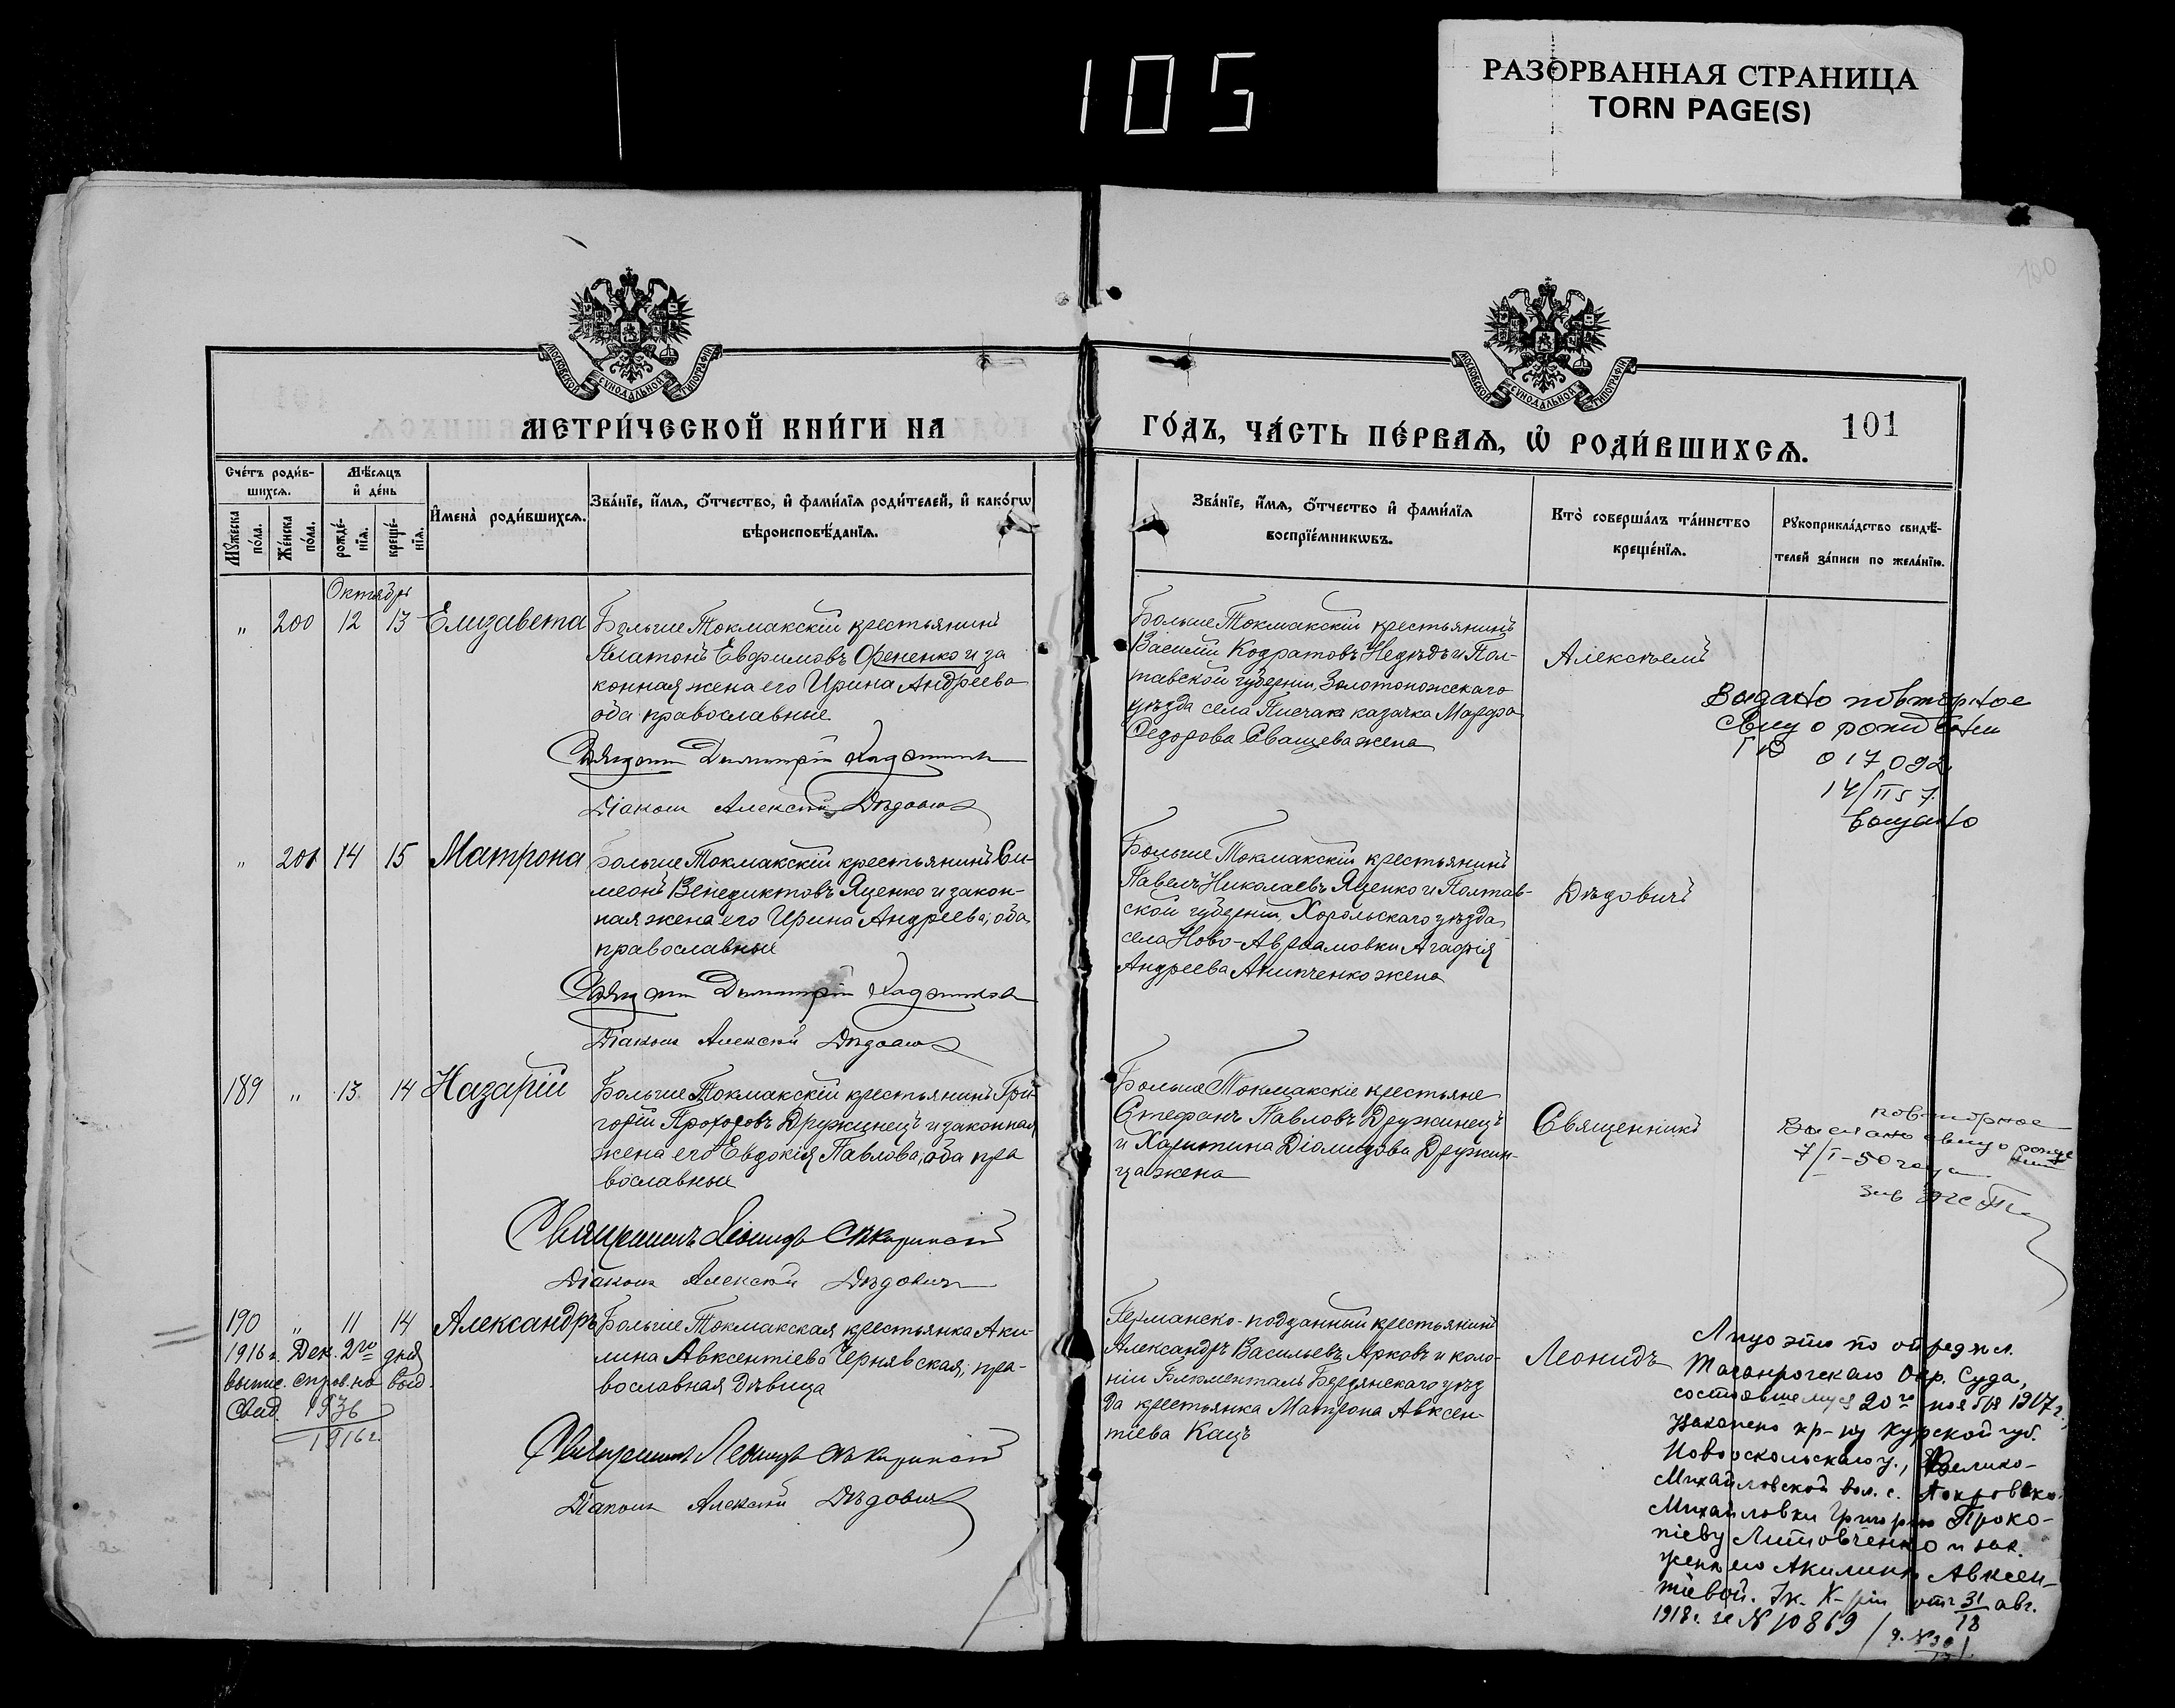 105
РАЗОРВАННАЯ СТРАНИЦА
TORN PAGE(S)
100
МОСКОВСКОЙ СУНОДАЛЬНОЙ ТИПОГРАФІИ
МОСКОВСКОЙ СУНОДАЛЬНОЙ ТИПОГРАФІИ
МЕТРИ́ЧЕСКОЙ КНИ́ГИ НА
ГО́ДЪ, ЧА́СТЬ ПЕ́РВАѦ, Ѡ҆ РОДИ́ВШИХСѦ.
101
Счётъ роди́в-
шихсѧ.
Мѣ́сѧцъ
и҆ де́нь
Мꙋ́жеска
по́ла.
Же́нска
по́ла.
рожде́-
нїѧ.
креще́-
нїѧ.
И҆мена̀ роди́вшихсѧ.
Зва́нїе, и҆́мѧ, ѻ҆́тчество, и҆ фами́лїѧ роди́телей, и҆ како́гѡ
вѣроисповѣ́данїѧ.
Зва́нїе, и҆́мѧ, ѻ҆́тчество и҆ фами́лїѧ
воспрїе́мникѡвъ.
Кто̀ соверша́лъ та́инство
креще́нїѧ.
Рꙋкоприкла́дство свидѣ́-
телей за́писи по жела́нїю.
Октябрь
" 200 12 13 Елизавета
Больше Токмакскій крестьянинъ
Платонъ Евфимовъ Фененко и за
конная жена его Ирина Андреева
оба православные
Діаконъ Алексій Дѣдовичъ
Больше Токмакскій крестьянинъ
Василій Кодратовъ и Пол-
тавской губерніи, Золотоножскаго
уѣзда села казачка Марфа
Федорова жена
Алексѣемъ
Видано повторное
свид о рождении
017092
14/II 57.
" 201 14 15 Матрона
Больше Токмакскій крестьянинъ Си-
меонъ Венедиктовъ Яценко и закон-
ная жена его Ирина Андреева, оба
православные
Діаконъ Алексій Дѣдовичъ
Больше Токмакскій крестьянинъ
Павелъ Николаевъ Яценко и Полтав-
ской губерніи, Хорольскаго уѣзда
села Ново-Аврамовки Агафія
Андреева жена
Дѣдовичъ
189 " 13 14 Назарій
Больше Токмакскій крестьянинъ Гри-
горій Прохоровъ Дружинецъ и законная
жена его Евдокія Павлова, оба пра
вославные
Священникъ Леонидъ
Діаконъ Алексій Дѣдовичъ
Больше Токмакскіе крестьяне
Стефанъ Павловъ Дружинецъ
и Харитина Діомидова Дружин-
ца жена
Священникъ
повторное
7/I-50 года
190 " 11 14 Александръ
1916 г. Дек. 2го дня
выпис. справ. на выд.
Свид. 1936
1916 г.
Больше Токмакская крестьянка Аки-
лина Авксентіева Чернявская, пра-
вославная дѣвица
Священникъ Леонидъ
Діаконъ Алексій Дѣдовичъ
Германско-подданный крестьянинъ
Александръ Васильевъ Ярковъ и коло-
ніи Блюменталь Бердянскаго уѣз
да крестьянка Матрона Авксен-
тіева Кацъ
Леонидъ
Лицо это по опредѣл.
Таганрогскаго Окр. Суда,
состоявшемуся 20го ноября 1917 г.,
узаконено кр-ну Курской губ.
Новооскольскаго у., Велико-
Михайловской вол. с. Покровско-
Михайловки Григорію Проко-
піеву Литовченко и зак.
женѣ его Акилинѣ Авксен-
тіевой. отъ 31/18 авг.
1918 г. за № 10869